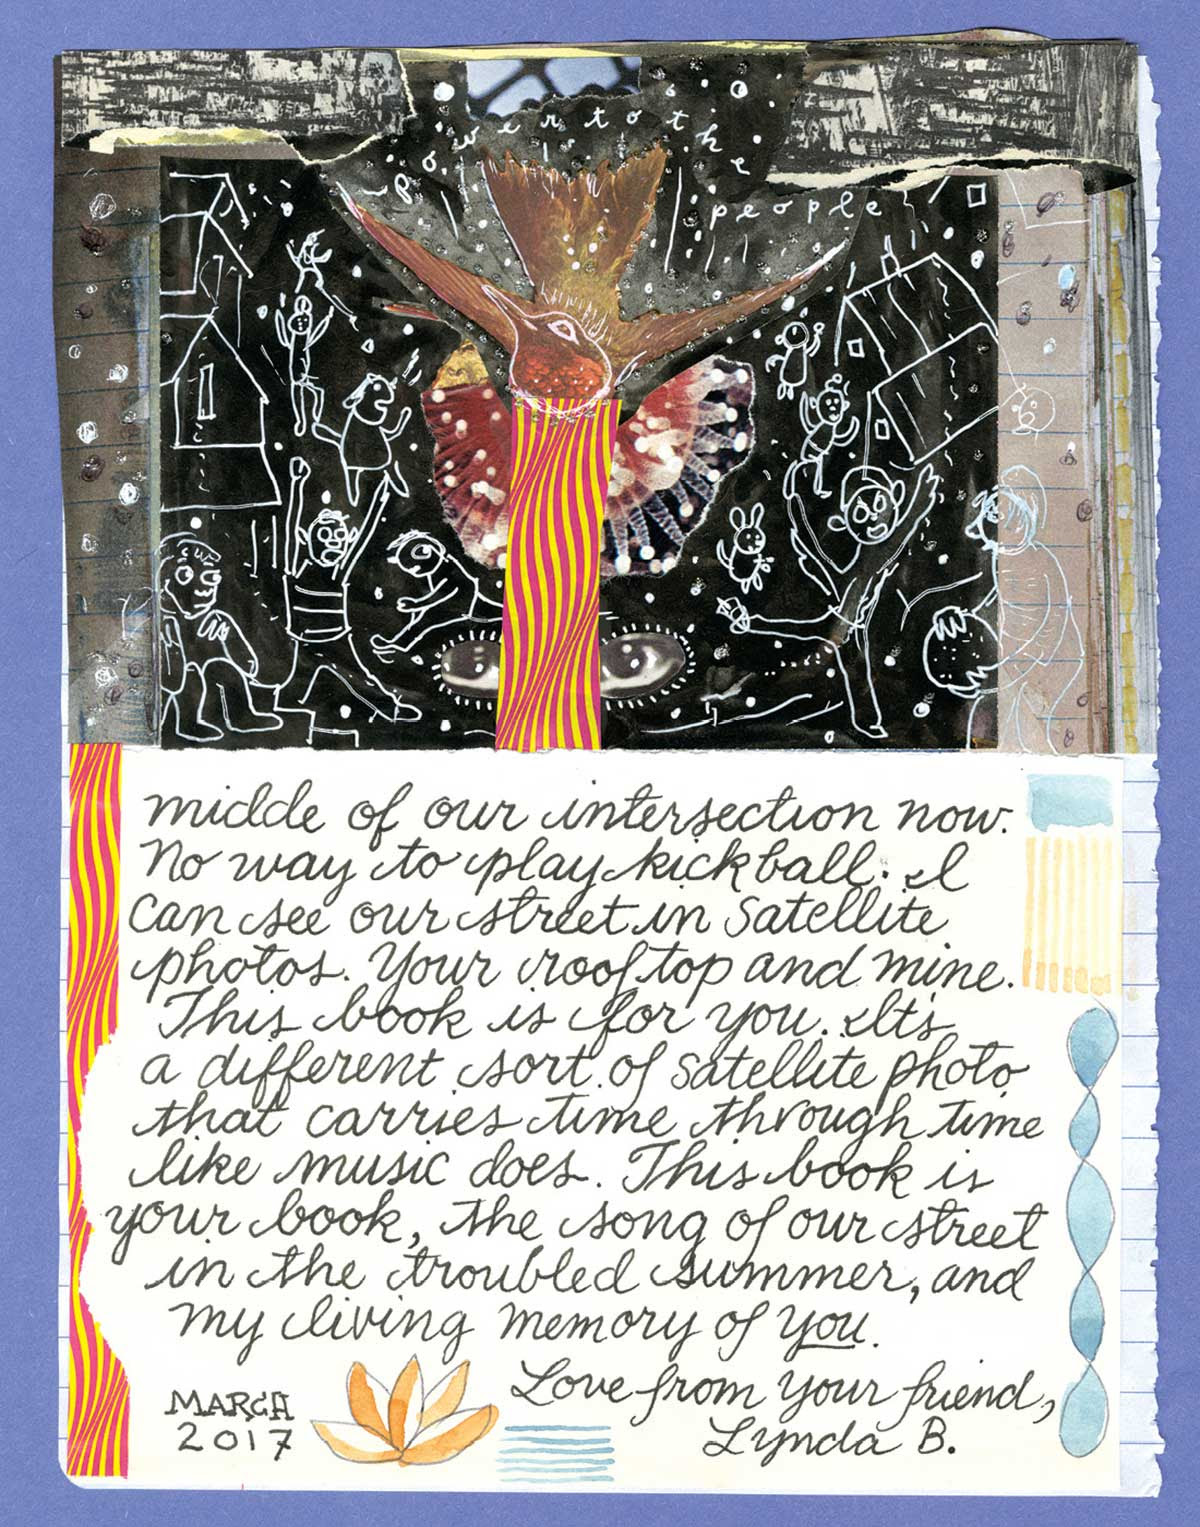 power to the
people
midde of our intersection now.
No way to play kickball. I
can see our street in satellite
photos. Your rooftop and mine.
This book is for you. It's
a different sort of satellite photo
that carries time through time
like music does. This book is
your book, the song of our street
in the troubled summer, and
my living memory of you.
Love from your friend,
Lynda B.
MARCH
2017